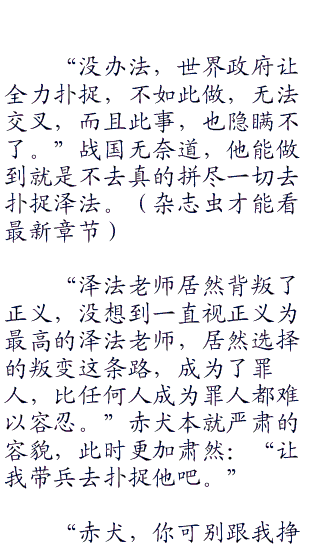 “没办法，世界政府让
全力扑捉，不如此做，无法
交叉，而且此事，也隐瞒不
了。”战国无奈道，他能做
到就是不去真的拼尽一切去
扑捉泽法。（杂志虫才能看
最新章节）
“泽法老师居然背叛了
正义，没想到一直视正义为
最高的泽法老师，居然选择
的叛变这条路，成为了罪
人，比任何人成为罪人都难
以容忍。”赤犬本就严肃的
容貌，此时更加肃然：“让
我带兵去扑捉他吧。”
“赤犬，你可别跟我挣